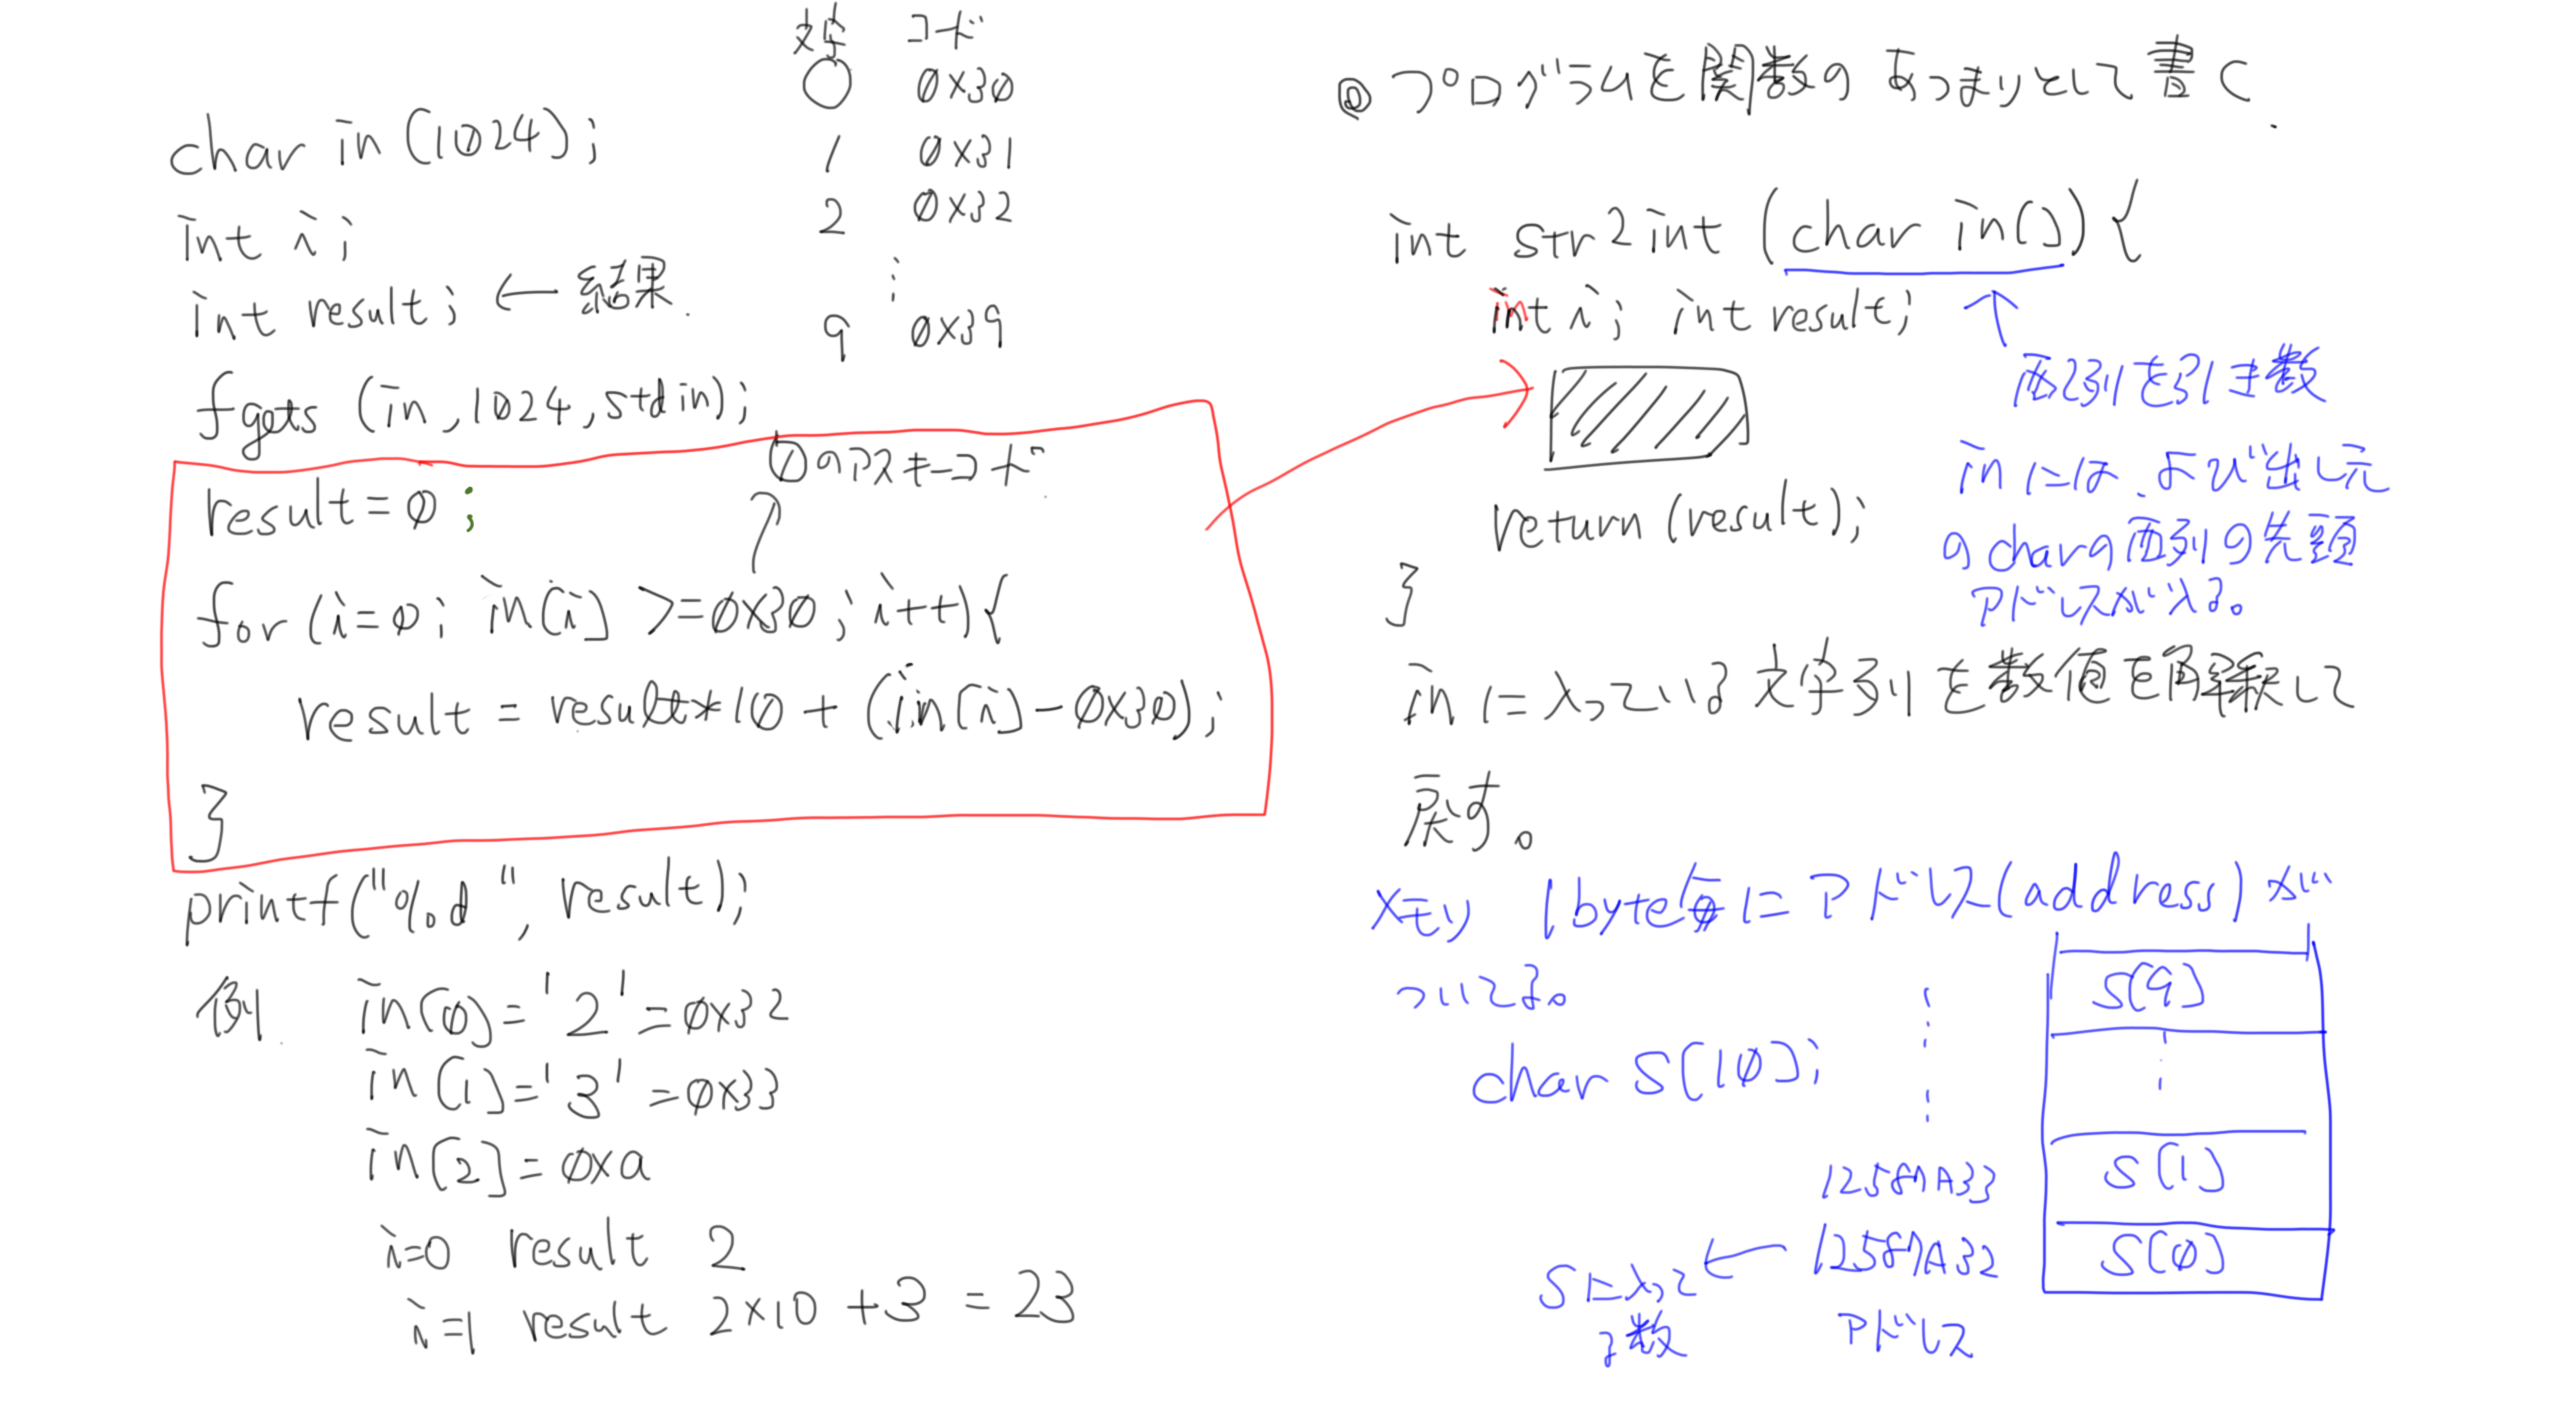 文字 コード
0 0x30
1 0x31
2 0x32
⋮
9 0x39
char in[1024];
int i;
int result; ← 結果.
fgets (in, 1024, stdin);
0のアスキーコード.
result = 0;
for (i=0; in[i] >= 0x30; i++){
result = result*10 + (in[i] - 0x30);
}
printf("%d", result);
例. in[0] = '2' = 0x32
in[1] = '3' = 0x33
in[2] = 0xa
i=0 result 2
i=1 result 2×10 + 3 = 23
◎プログラムを関数のあつまりとして書く.
int str2int (char in[]) {
int i; int result;
return (result);
}
↑
配列を引き数
inには、よび出し元
のcharの配列の先頭
アドレスが入る。
inに入っている文字列を数値を解釈して
戻す。
メモリ 1byte毎にアドレス(address)が
ついてる。
char s[10];
s[9]
⋮
s[1]
s[0]
12587A33
12587A32
アドレス
← sに入って
る数